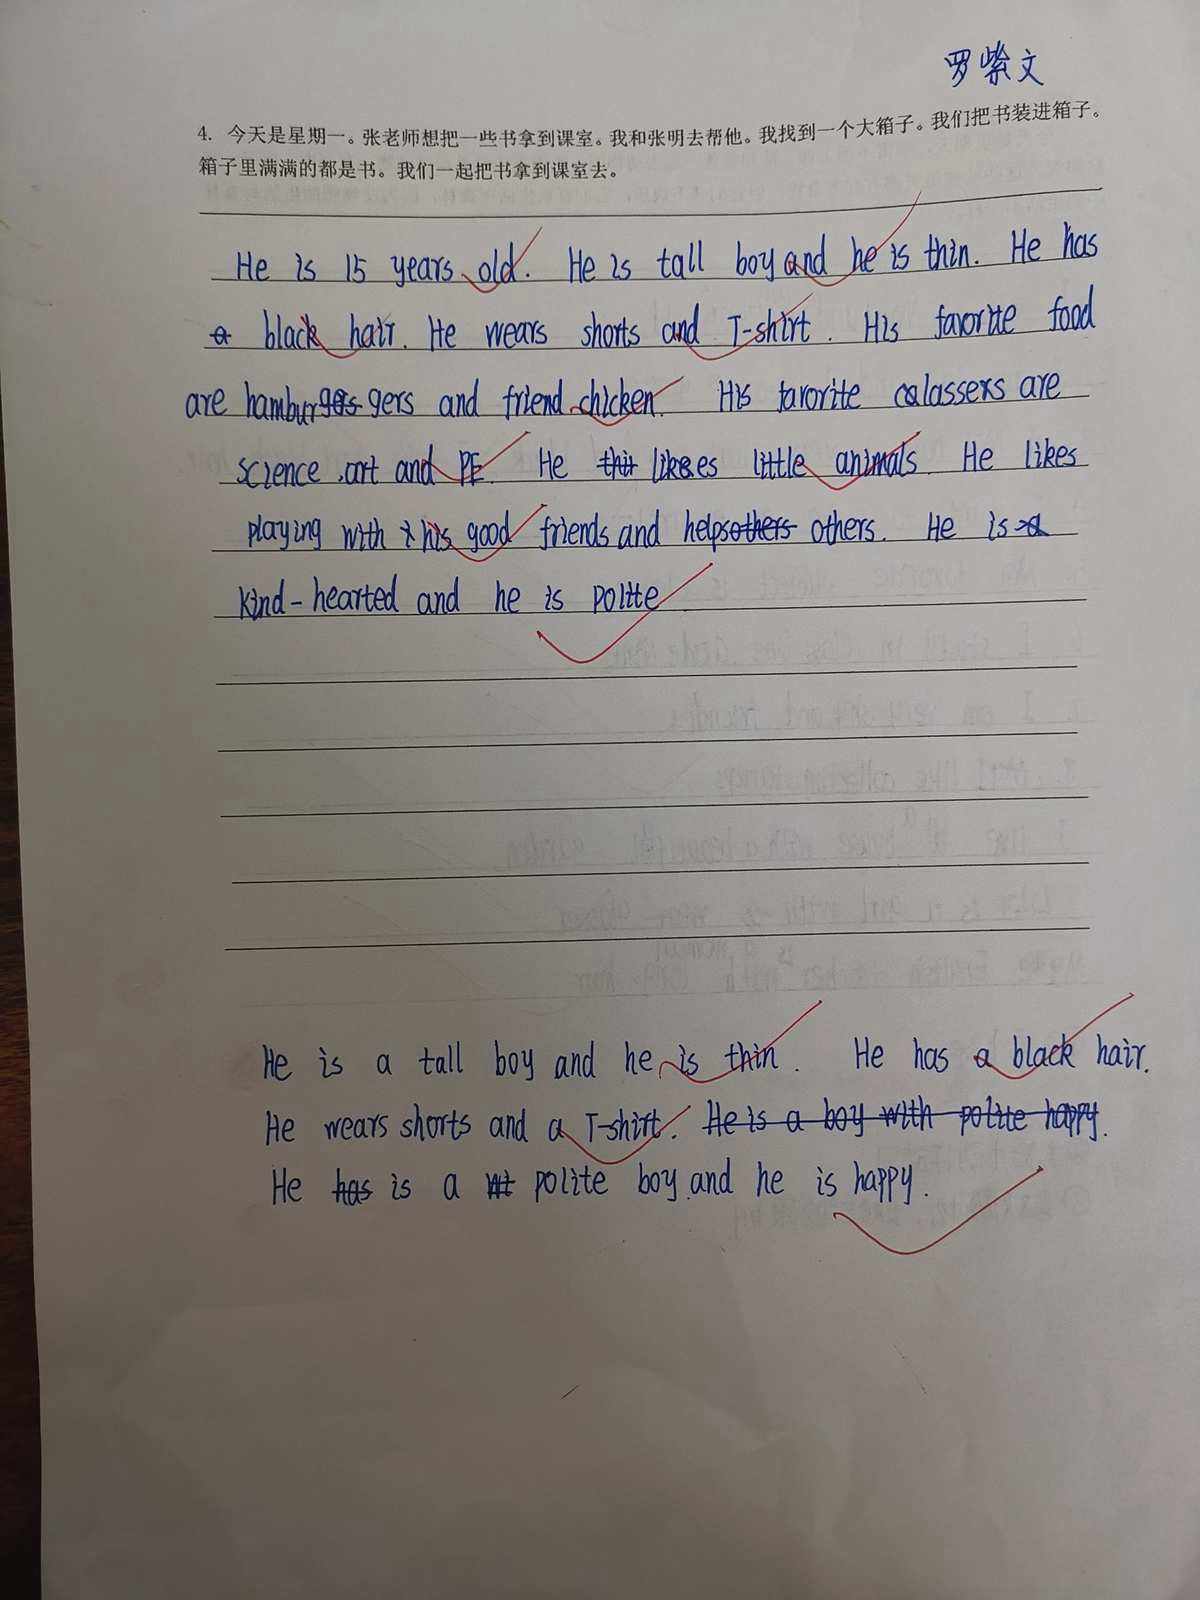 罗紫文
4. 今天是星期一。张老师想把一些书拿到课室。我和张明去帮他。我找到一个大箱子。我们把书装进箱子。
箱子里满满的都是书。我们一起把书拿到课室去。
He is 15 years old. He is tall boy and he is thin. He has
a black hair. He wears shorts and T-shirt. His favorite food
are hamburges gers and friend chicken. His favorite calassexs are
science, art and PE. He thit likes.es little animals. He likes
playing with his good friends and helps others others. He is a
kind-hearted and he is polite
He is a tall boy and he is thin. He has a black hair.
He wears shorts and a T-shirt. He is a boy with polite happy.
He has is a polite boy and he is happy.